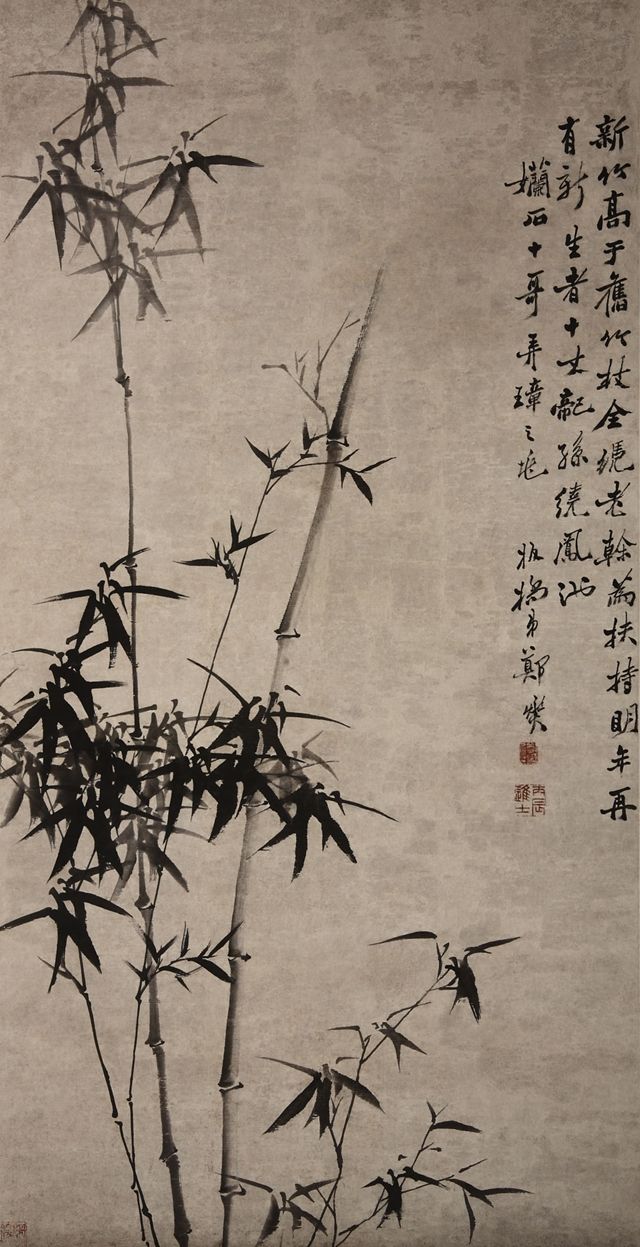 新竹高于舊竹枝全凴老榦為扶持明年再
有新生者十丈龍孫繞鳳池
孄石十哥弄璋之兆 板橋弟鄭燮
丙辰進士